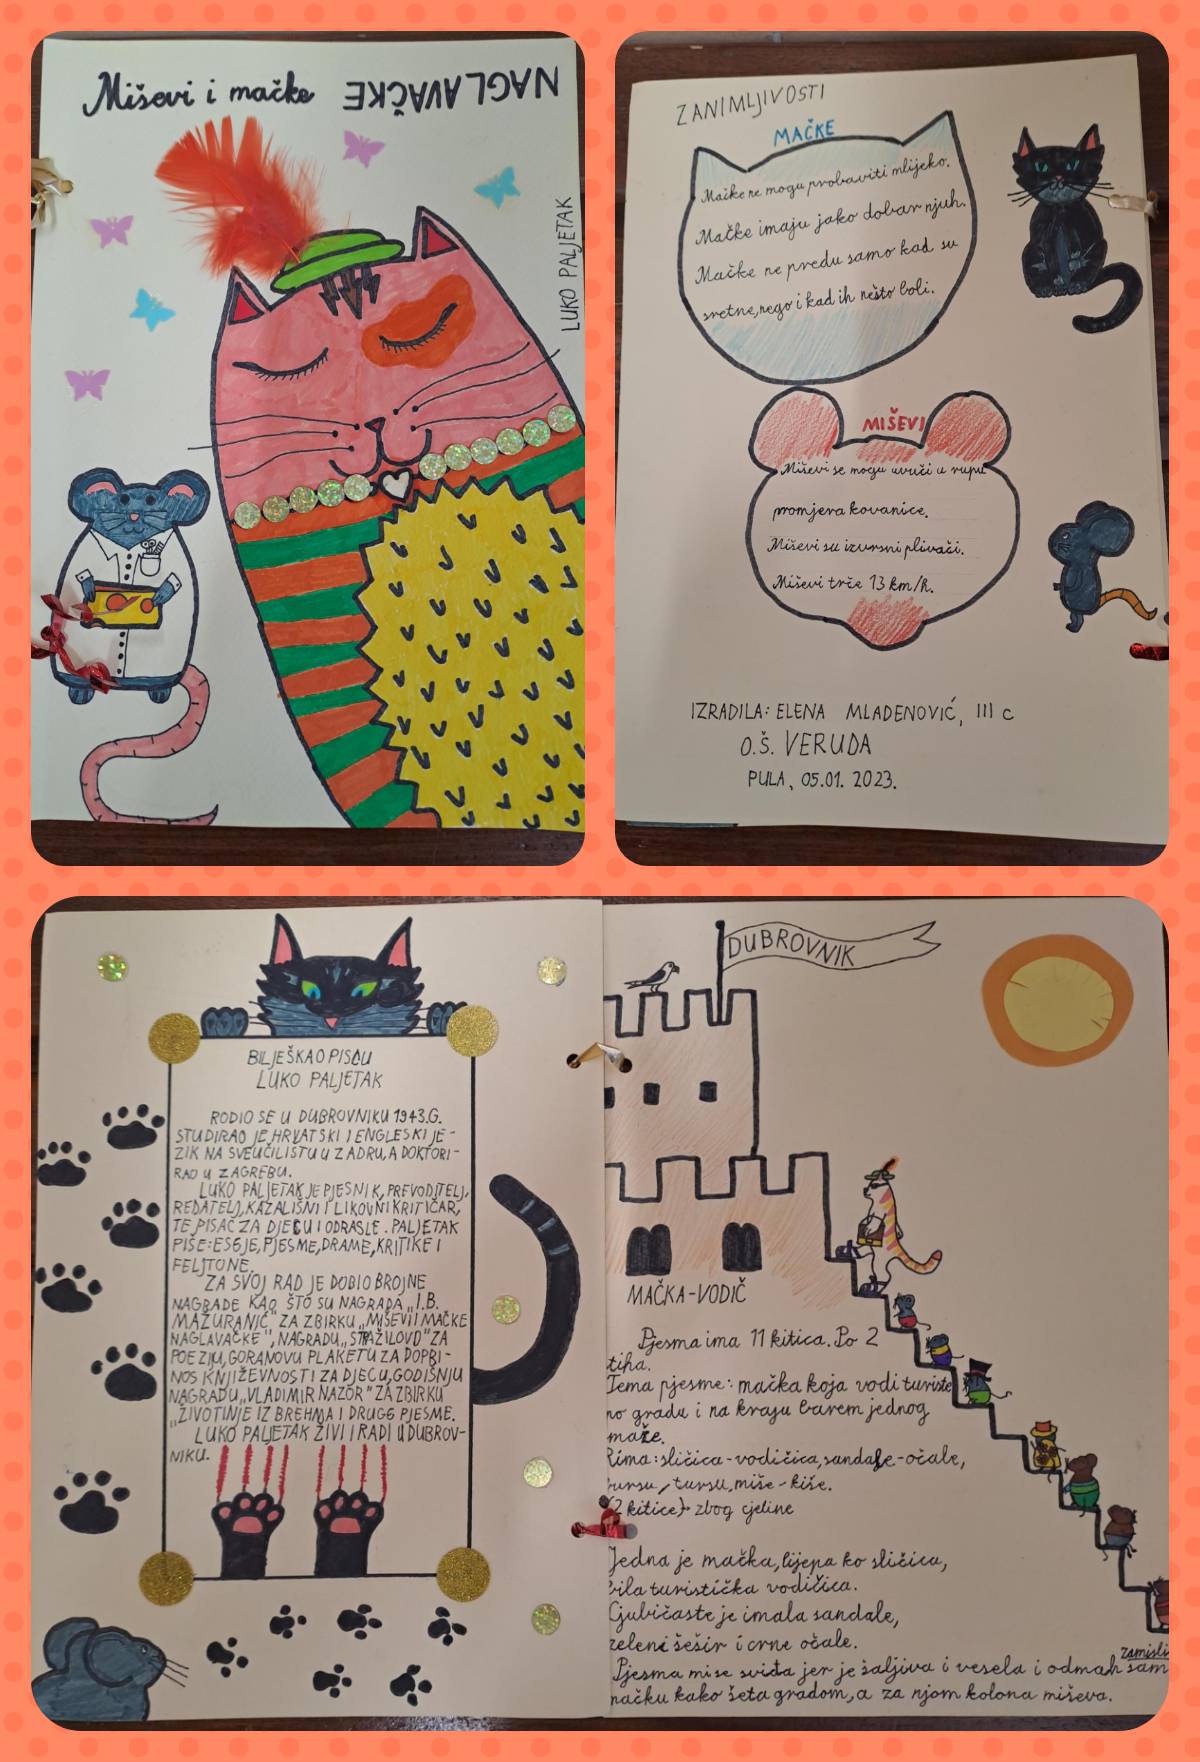 Miševi i mačke NAGLAVAČKE
LUKO PALJETAK
ZANIMLJIVOSTI
MAČKE
Mačke ne mogu probaviti mlijeko.
Mačke imaju jako dobar njuh.
Mačke ne predu samo kad su
sretne, nego i kad ih nešto boli.
MIŠEVI
Miševi se mogu uvući u rupu
promjera kovanice.
Miševi su izvrsni plivači.
Miševi trče 13 km/h.
IZRADILA: ELENA MLADENOVIĆ, III c
O.Š. VERUDA
PULA, 05.01. 2023.
BILJEŠKA O PISCU
LUKO PALJETAK
RODIO SE U DUBROVNIKU 1943.G.
STUDIRAO JE HRVATSKI I ENGLESKI JE-
ZIK NA SVEUČILISTU U ZADRU, A DOKTORI-
RAO U ZAGREBU.
LUKO PALJETAK JE PJESNIK, PREVODITELJ,
REDATELJ, KAZALIŠNI I LIKOVNI KRITIČAR,
TE PISAC ZA DJECU I ODRASLE. PALJETAK
PIŠE: ESEJE, PJESME, DRAME, KRITIKE I
FELJTONE.
ZA SVOJ RAD JE DOBIO BROJNE
NAGRADE KAO ŠTO SU NAGRADA „I.B.
MAŽURANIĆ" ZA ZBIRKU „MIŠEVI I MAČKE
NAGLAVAČKE", NAGRADU „STRAŽILOVO" ZA
POEZIJU, GORANOVU PLAKETU ZA DOPRI-
NOS KNJIŽEVNOSTI ZA DJECU, GODIŠNJU
NAGRADU „VLADIMIR NAZOR" ZA ZBIRKU
„ŽIVOTINJE IZ BREHMA I DRUGE PJESME.
LUKO PALJETAK ŽIVI I RADI U DUBROV-
NIKU.
DUBROVNIK
MAČKA-VODIČ
Pjesma ima 11 kitica. Po 2
tiha.
Tema pjesme: mačka koja vodi turiste
po gradu i na kraju barem jednog
maže.
Rima: sličica-vodičica, sandale-očale,
bursu / tursu, miše-kiše.
(2 kitice) zbog cjeline
Jedna je mačka, lijepa ko sličica,
bila turistička vodičica.
Ljubičaste je imala sandale,
zeleni šešir i crne očale.
zamisli
Pjesma mi se sviđa jer je šaljiva i vesela i odmah sam
mačku kako šeta gradom, a za njom kolona miševa.